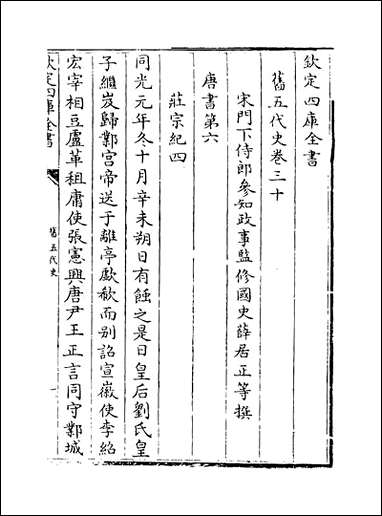 欽定四庫全書
舊五代史卷三十
宋門下侍郎參知政事監修國史薛居正等撰
唐書第六
莊宗紀四
同光元年冬十月辛未朔日有蝕之是日皇后劉氏皇
子繼岌歸鄴宮帝送于離亭歔欷而别詔宣徽使李紹
宏宰相豆盧革租庸使張憲興唐尹王正言同守鄴城
欽定四庫全書
舊五代史
一